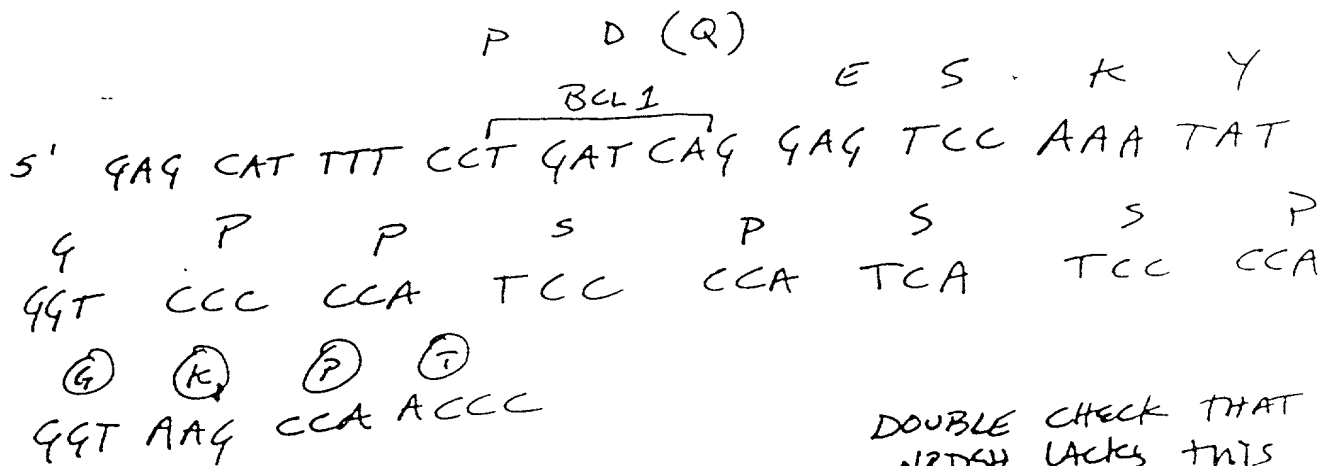 P D (Q)
BCL 1
E S K Y
5' GAG CAT TTT CCT GATCAG GAG TCC AAA TAT
G P P S P S S P
GGT CCC CCA TCC CCA TCA TCC CCA
G K P T
GGT AAG CCA ACCC
DOUBLE CHECK THAT
LACKS THIS